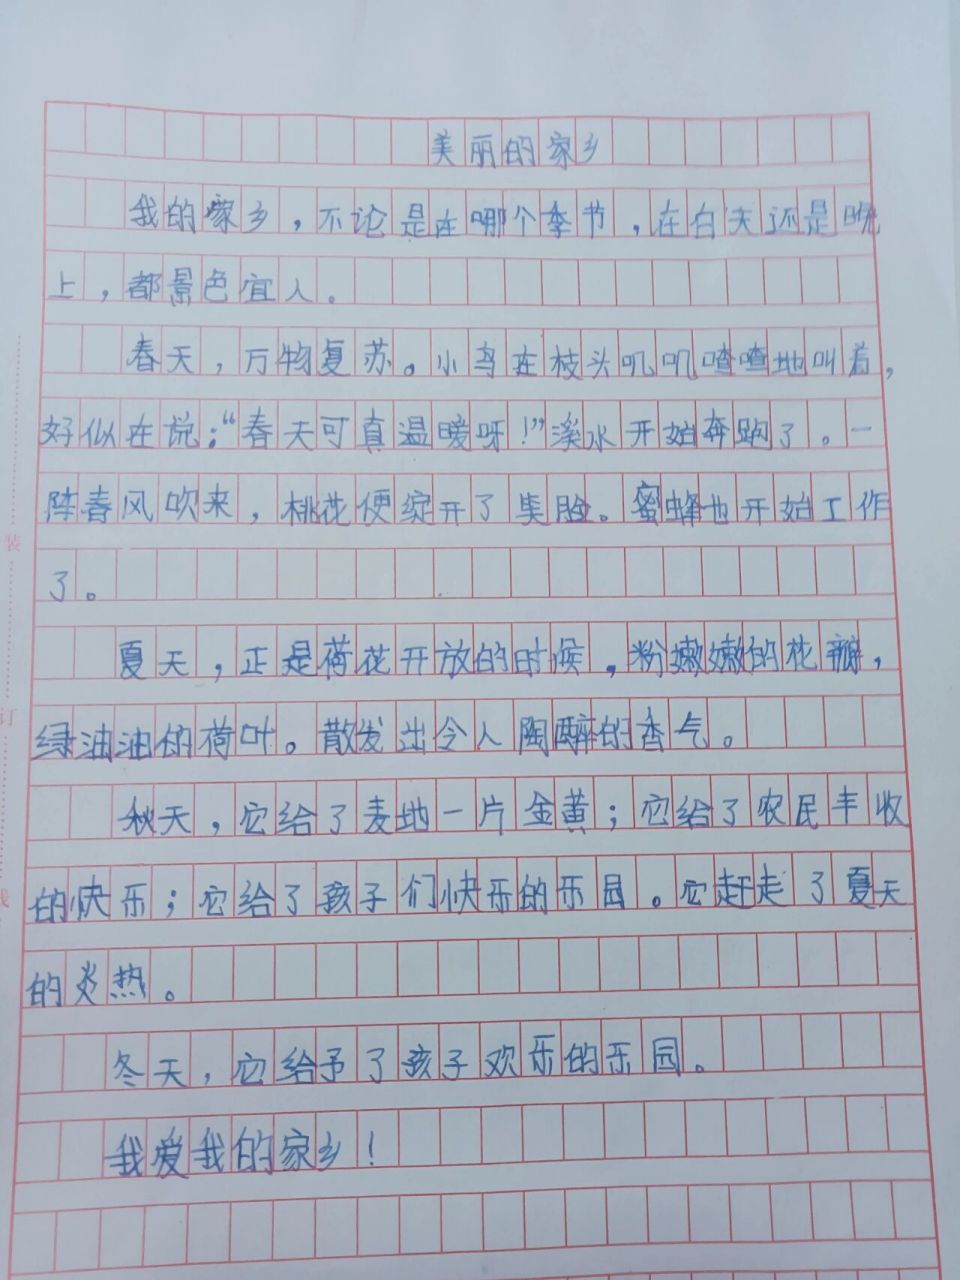 美丽的家乡
我的家乡，不论是在哪个季节，在白天还是晚
上，都景色宜人。
春天，万物复苏。小鸟在枝头叽叽喳喳地叫着，
好似在说：“春天可真温暖呀！”溪水开始奔跑了。一
阵春风吹来，桃花便绽开了笑脸。蜜蜂也开始工作
了。
夏天，正是荷花开放的时候，粉嫩嫩的花瓣，
绿油油的荷叶。散发出令人陶醉的香气。
秋天，它给了麦地一片金黄；它给了农民丰收
的快乐；它给了孩子们快乐的乐园。它赶走了夏天
的炎热。
冬天，它给予了孩子欢乐的乐园。
我爱我的家乡！
装
订
线